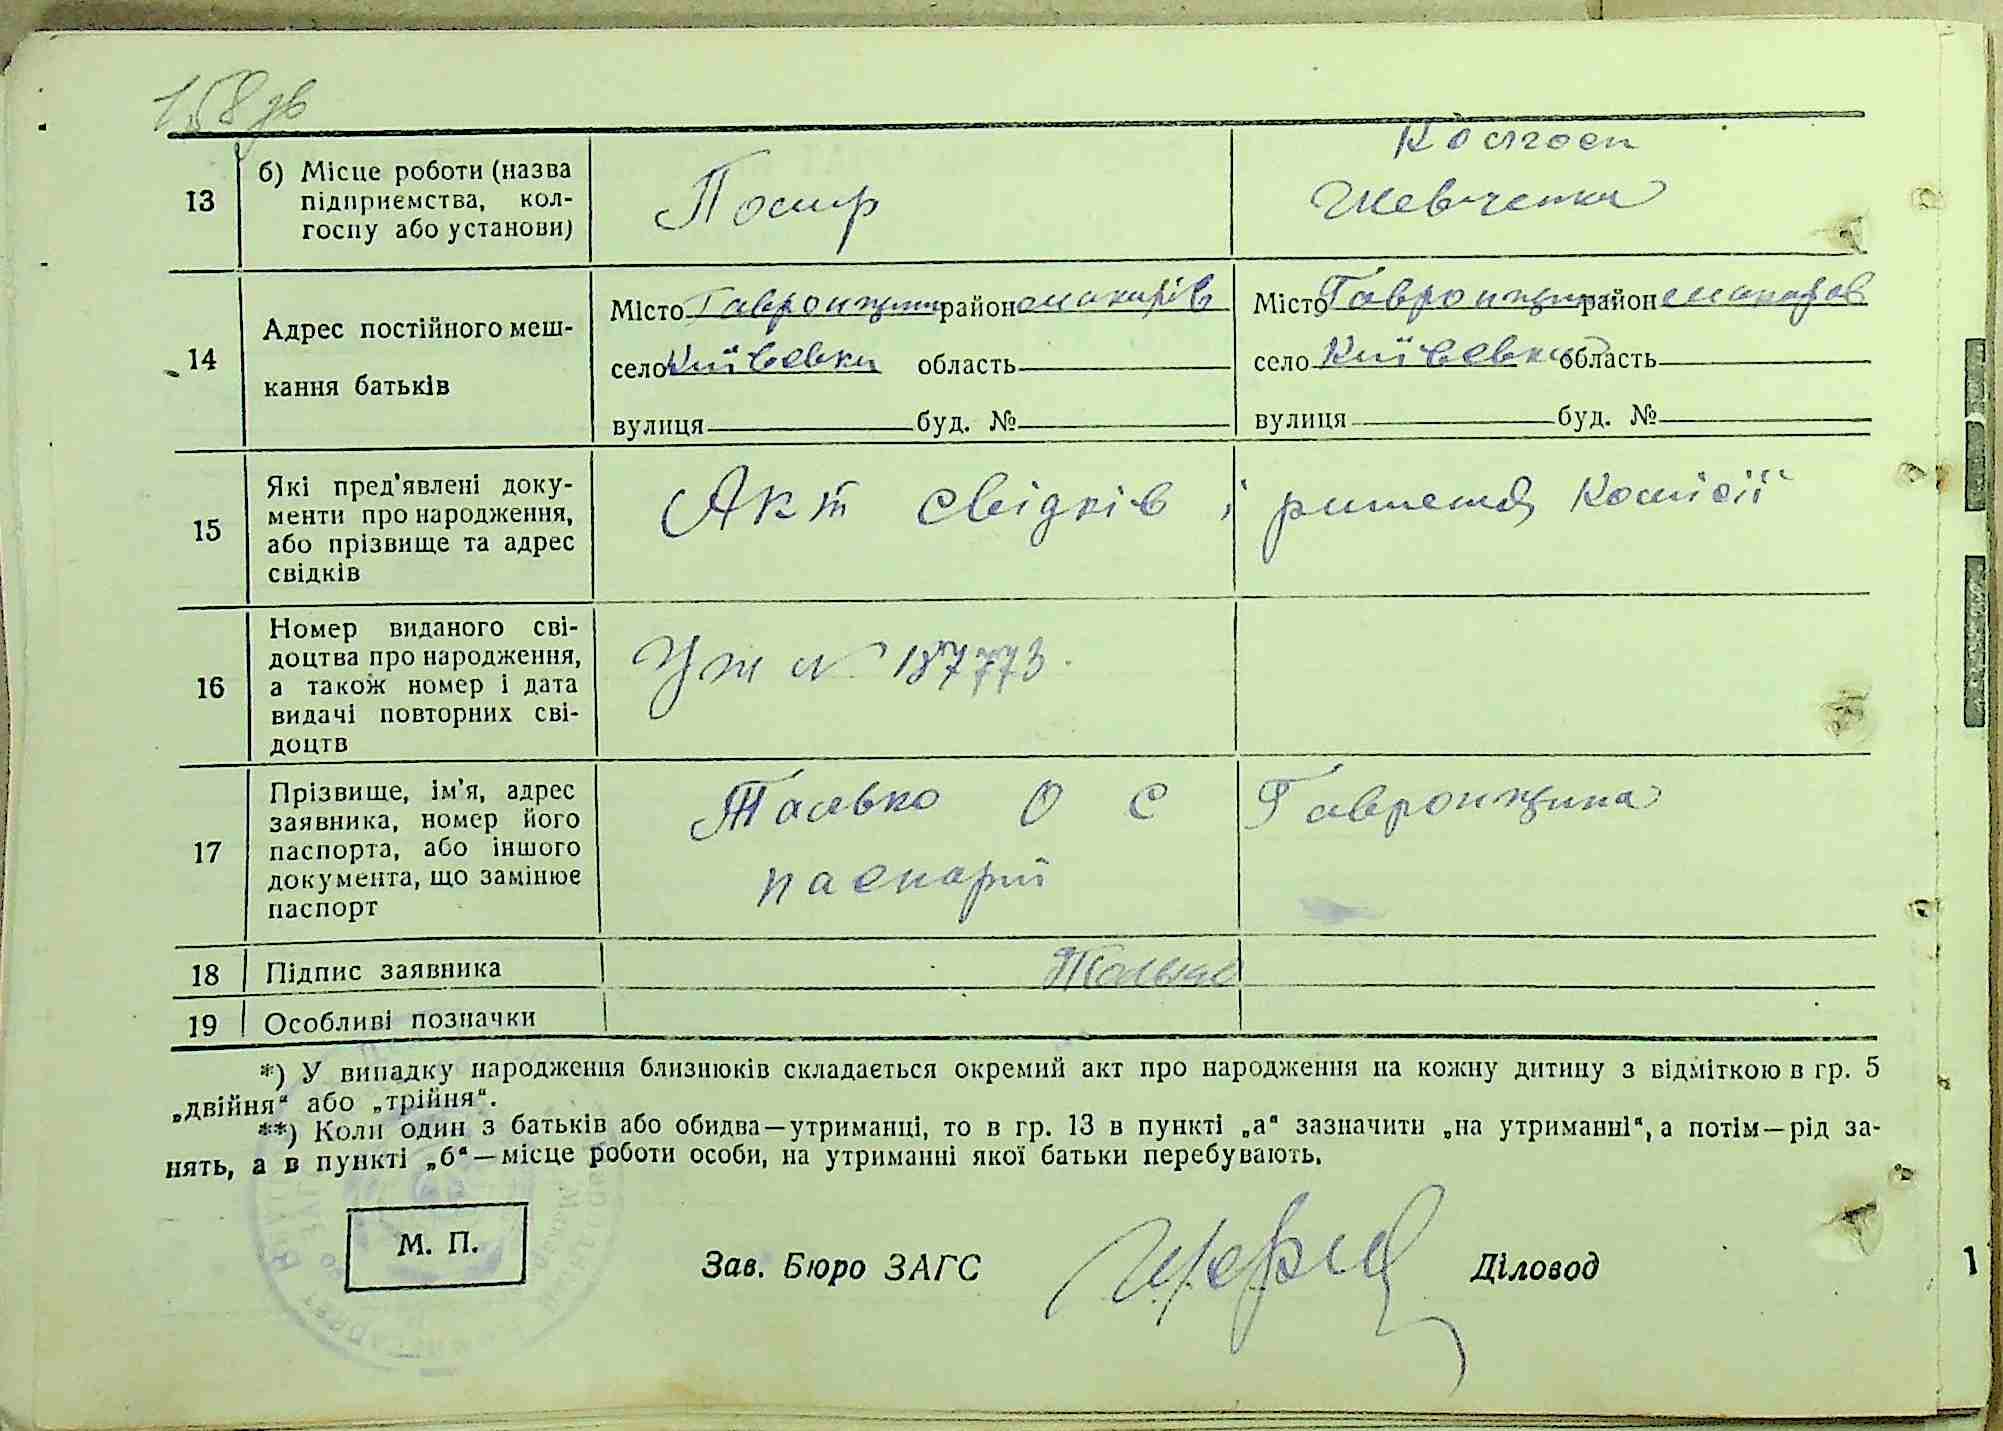 158 зв
13 б) Місце роботи (назва підприємства, колгоспу або установи) Помер Колгосп Шевченка
14 Адрес постійного мешкання батьків
Місто Гавронщина район макарів Місто Гавронщина район макарів
село Київська область село Київська область
вулиця буд. № вулиця буд. №
15 Які пред'явлені документи про народження, або прізвище та адрес свідків Акт свідків і ришення Комісії
16 Номер виданого свідоцтва про народження, а також номер і дата видачі повторних свідоцтв № 187773
17 Прізвище, ім'я, адрес заявника, номер його паспорта, або іншого документа, що замінює паспортТалько О С Гавронщина
паспорт
18 Підпис заявника Талько
19 Особливі позначки
*) У випадку народження близнюків складається окремий акт про народження на кожну дитину з відміткою в гр. 5
„двійня“ або „трійня“.
**) Коли один з батьків або обидва—утриманці, то в гр. 13 в пункті „а“ зазначити „на утриманні“, а потім—рід за-
нять, а в пункті „б“—місце роботи особи, на утриманні якої батьки перебувають.
М. П. Зав. Бюро ЗАГС Діловод
1